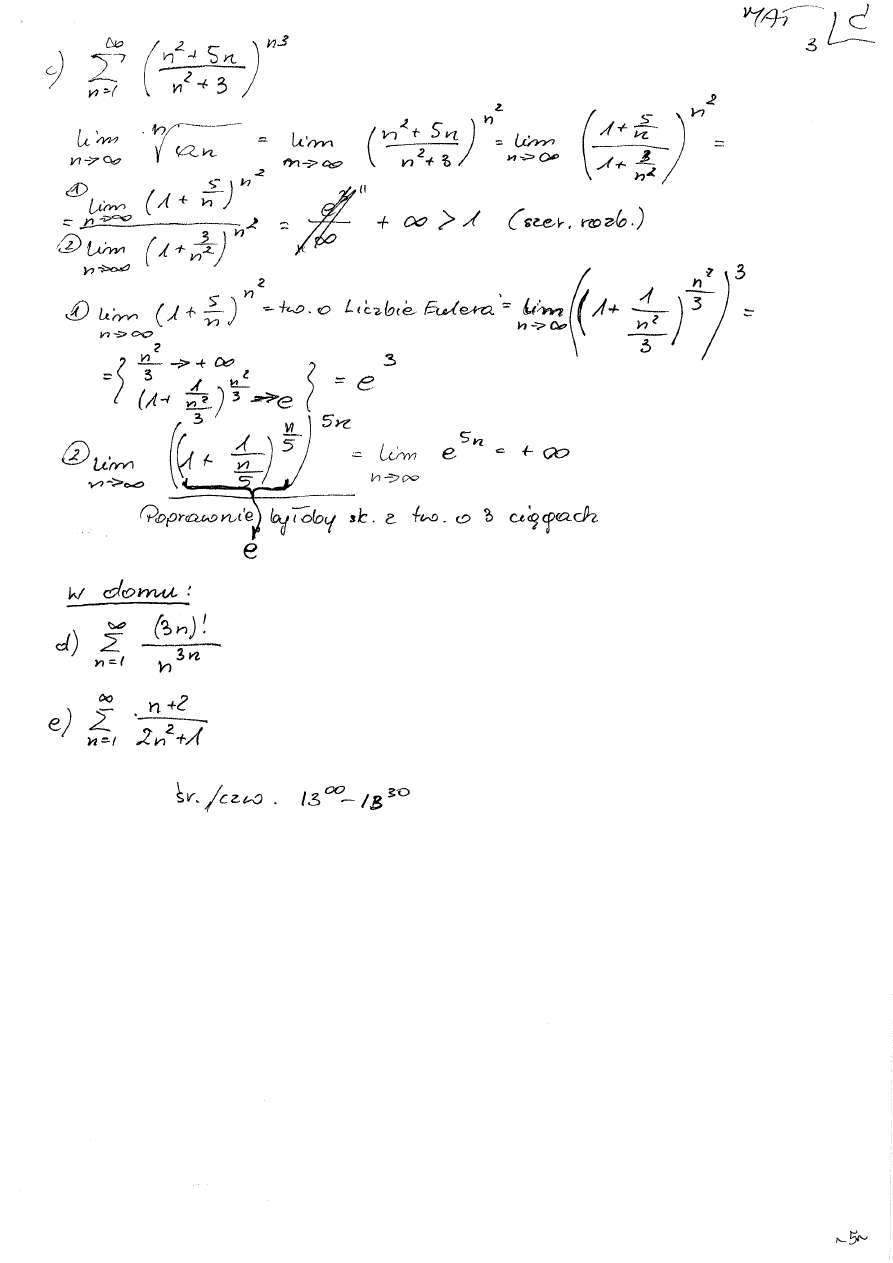 MAT 3 C
c) ∑_{n=1}^{∞} ((n²+5n)/(n²+3))^{n3}
lim_{n→∞} ⁿ√an = lim_{n→∞} ((n²+5n)/(n²+3))^{n²} = lim_{n→∞} ((1+5/n)/(1+3/n²))^{n²} =
= (① lim_{n→∞} (1+5/n)^{n²})/(② lim_{n→∞} (1+3/n²)^{n²}) = +∞ > 1 (szer. rozb.)
① lim_{n→∞} (1+5/n)^{n²} = tw. o Liczbie Eulera = lim_{n→∞} ((1+1/(n²/3))^{n²/3})^3 =
= { n²/3 → +∞
(1+1/(n²/3))^{n²/3} → e } = e³
② lim_{n→∞} ((1+1/(n/5))^{n/5})^{5n} = lim_{n→∞} e^{5n} = +∞
Poprawnie byłoby sk. z tw. o 3 ciągach
e
w domu:
d) ∑_{n=1}^{∞} (3n)!/n^{3n}
e) ∑_{n=1}^{∞} (n+2)/(2n²+1)
śr./czw. 13⁰⁰-13³⁰
~5~